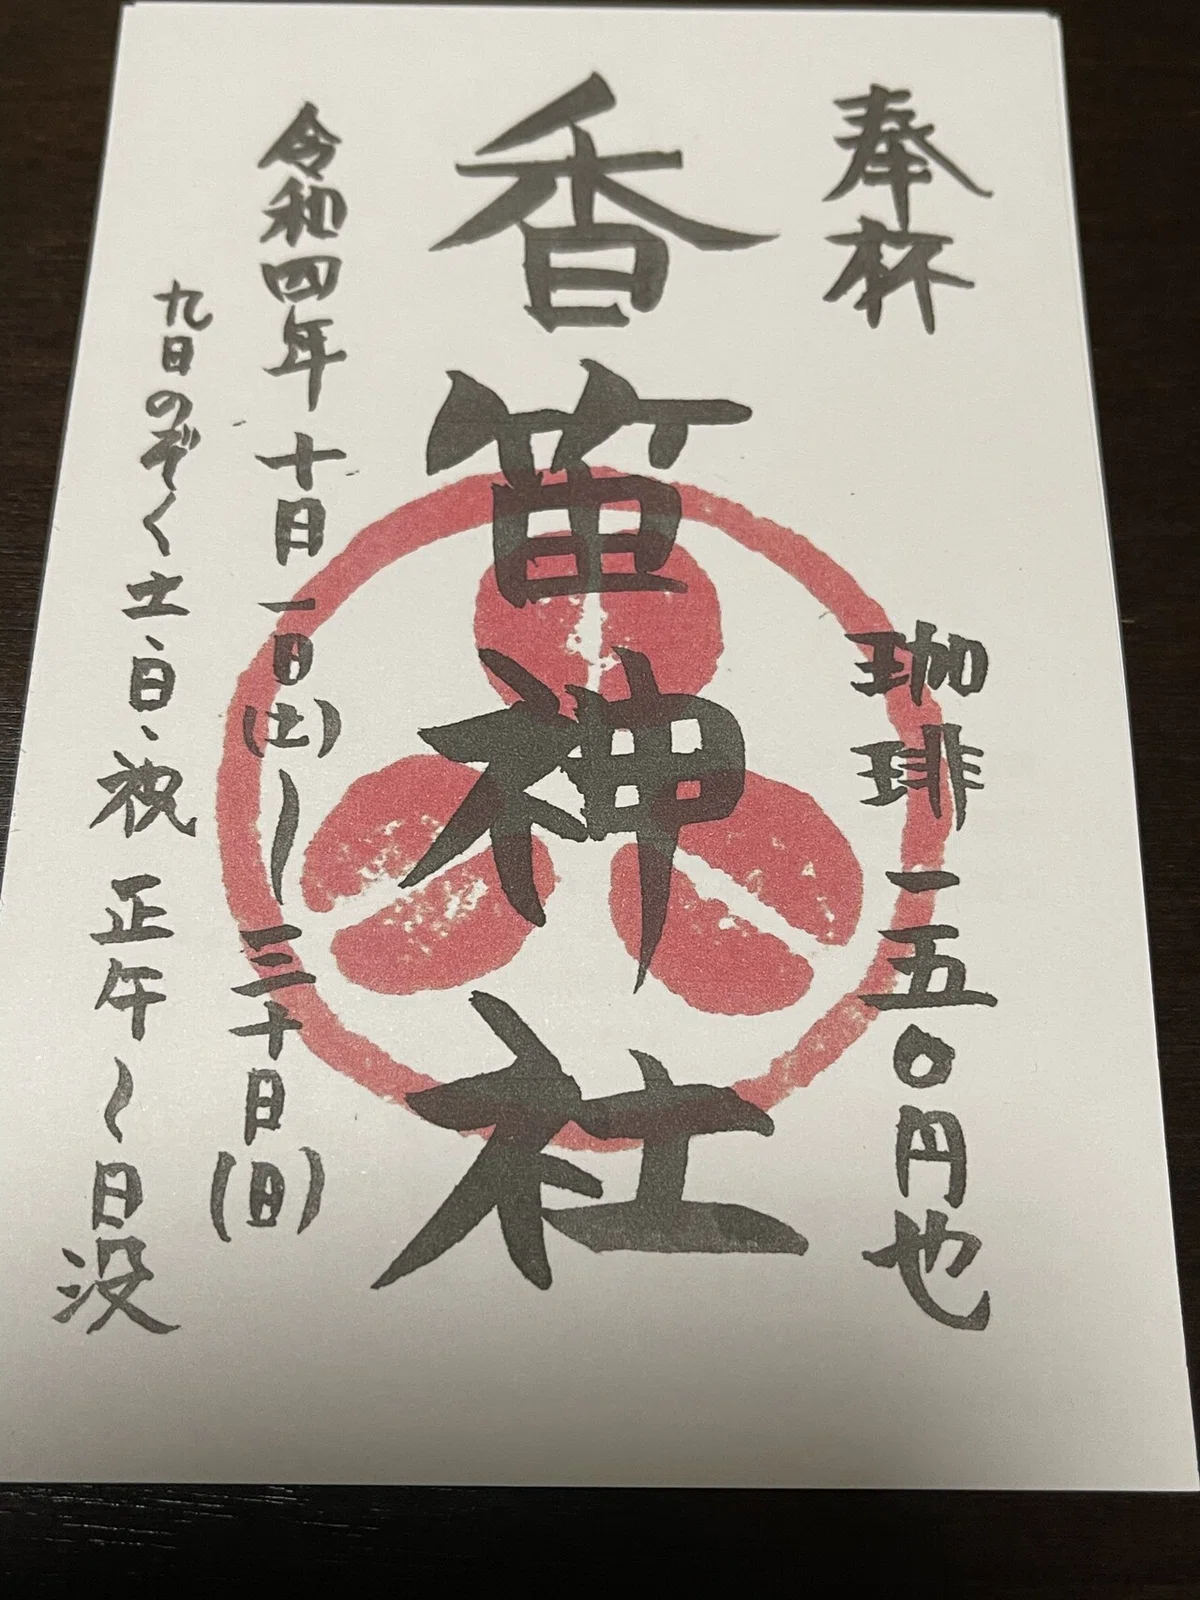 奉杯
珈琲 一五〇円也
香笛神社
令和四年 十月一日(土)〜三十日(日)
九日のぞく土、日、祝 正午〜日没